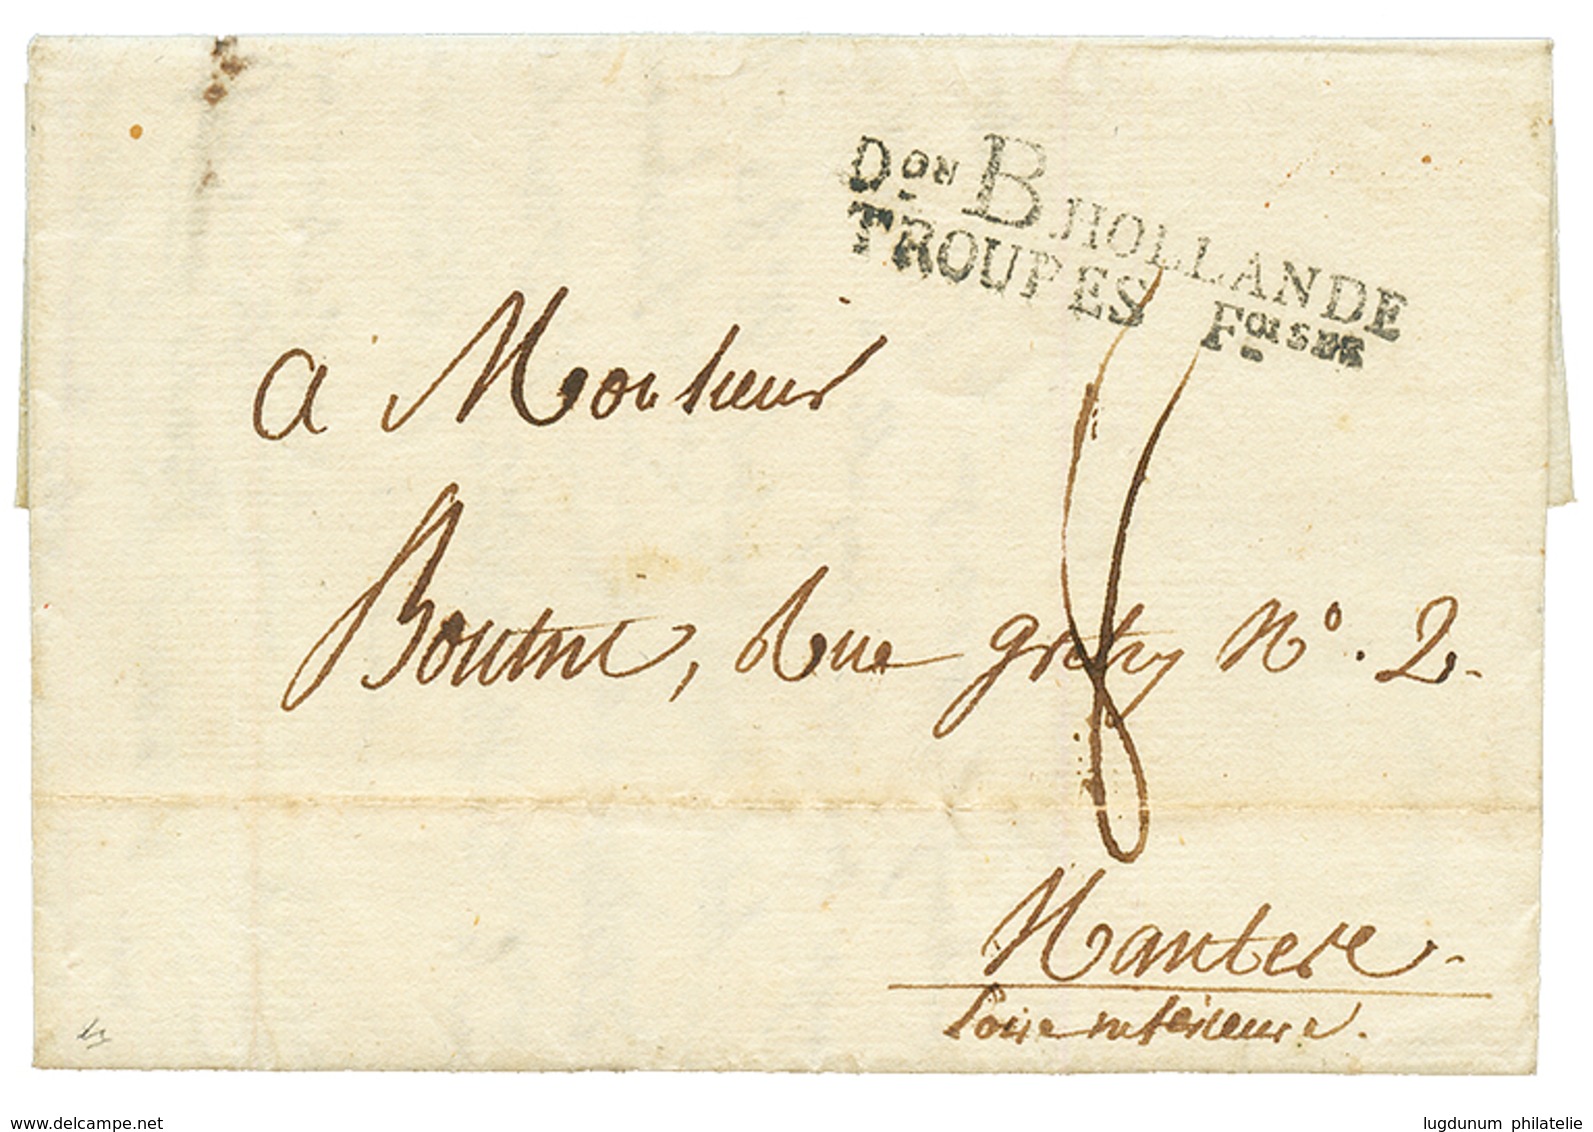 Don B HOLLANDE
TROUPES Foises
a Monsieur
Boutin, Rue gretry No. 2.
8
Nantese.
Loire inferieure.
www.delcampe.net
lugdunum philatelie